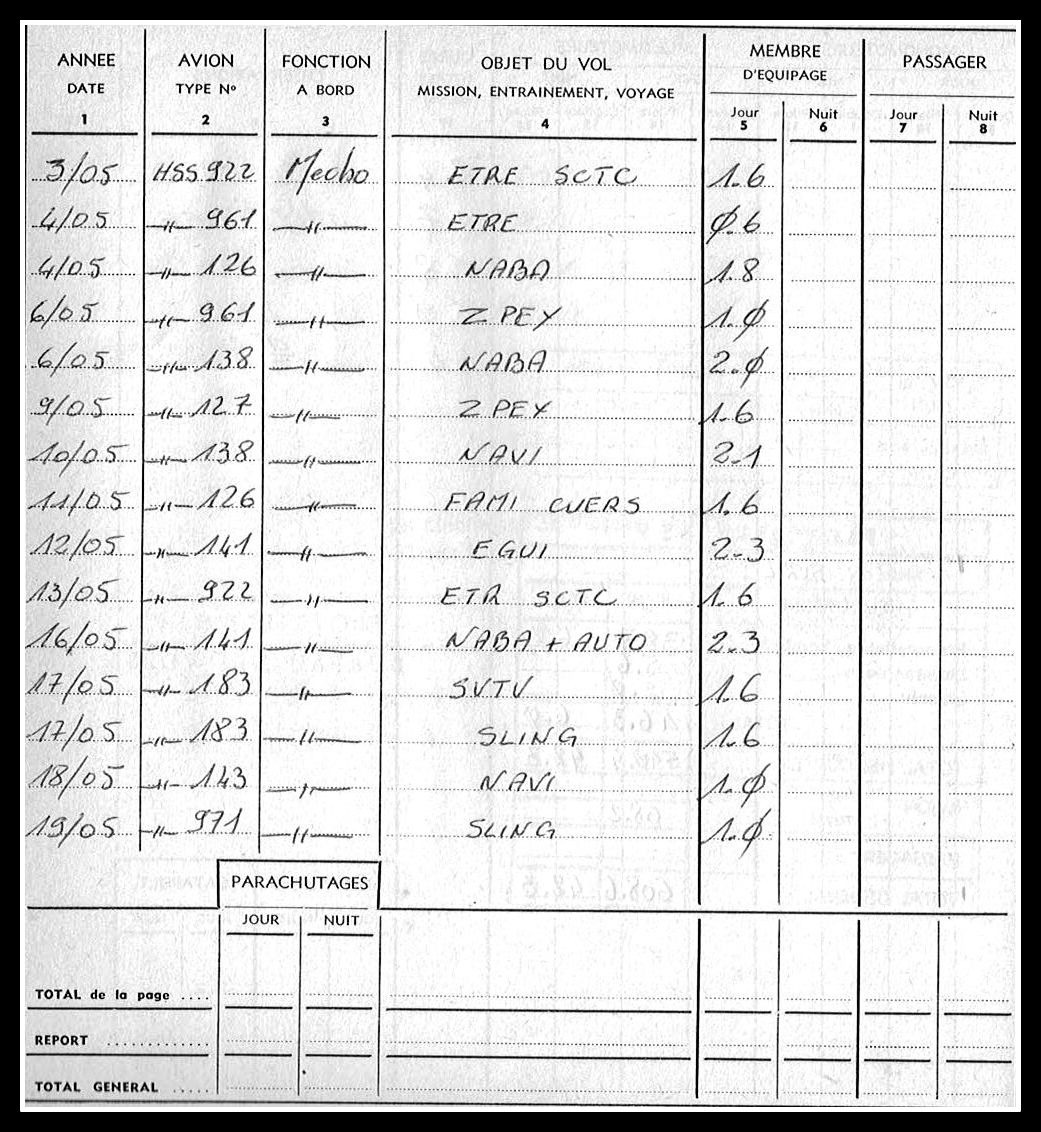 ANNEE AVION FONCTION OBJET DU VOL MEMBRE D'EQUIPAGE PASSAGER
DATE TYPE Nº A BORD MISSION, ENTRAINEMENT, VOYAGE Jour Nuit Jour Nuit
1 2 3 4 5 6 7 8
3/05 HSS 922 Mecbo ETRE SCTC 1.6
4/05 -〃- 961 -〃- ETRE Ø.6
4/05 -〃- 126 -〃- NABA 1.8
6/05 -〃- 961 -〃- Z PEY 1.Ø
6/05 -〃- 138 -〃- NABA 2.Ø
9/05 -〃- 127 -〃- Z PEY 1.6
10/05 -〃- 138 -〃- NAVI 2.1
11/05 -〃- 126 -〃- FAMI CUERS 1.6
12/05 〃 141 -〃- EGUI 2.3
13/05 -〃- 922 -〃- ETR SCTC 1.6
16/05 -〃- 141 -〃- NABA + AUTO 2.3
17/05 -〃- 183 -〃- SVTV 1.6
17/05 -〃- 183 -〃- SLING 1.6
18/05 -〃- 143 -〃- NAVI 1.Ø
19/05 -〃- 971 -〃- SLING 1.Ø
PARACHUTAGES
JOUR NUIT
TOTAL de la page ....
REPORT ............
TOTAL GENERAL .....